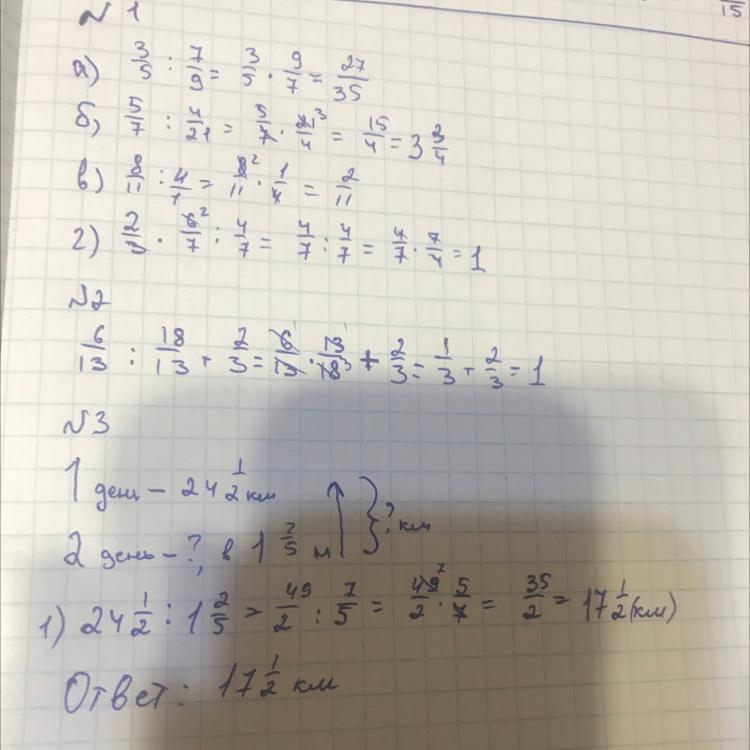 15
№ 1
а) 3/5 : 7/9 = 3/5 · 9/7 = 27/35
б) 5/7 : 4/21 = 5/7 · 21³/4 = 15/4 = 3 3/4
в) 8/11 : 4/1 = 8²/11 · 1/4 = 2/11
г) 2/3 · 6²/7 : 4/7 = 4/7 : 4/7 = 4/7 · 7/4 = 1
№2
6/13 : 18/13 + 2/3 = 6¹/13 · 13¹/18³ + 2/3 = 1/3 + 2/3 = 1
№3
1 день – 24 1/2 км
2 день – ?, в 1 2/5 м } ? км
1) 24 1/2 : 1 2/5 = 49/2 : 7/5 = 49⁷/2 · 5/7 = 35/2 = 17 1/2 (км)
Ответ: 17 1/2 км